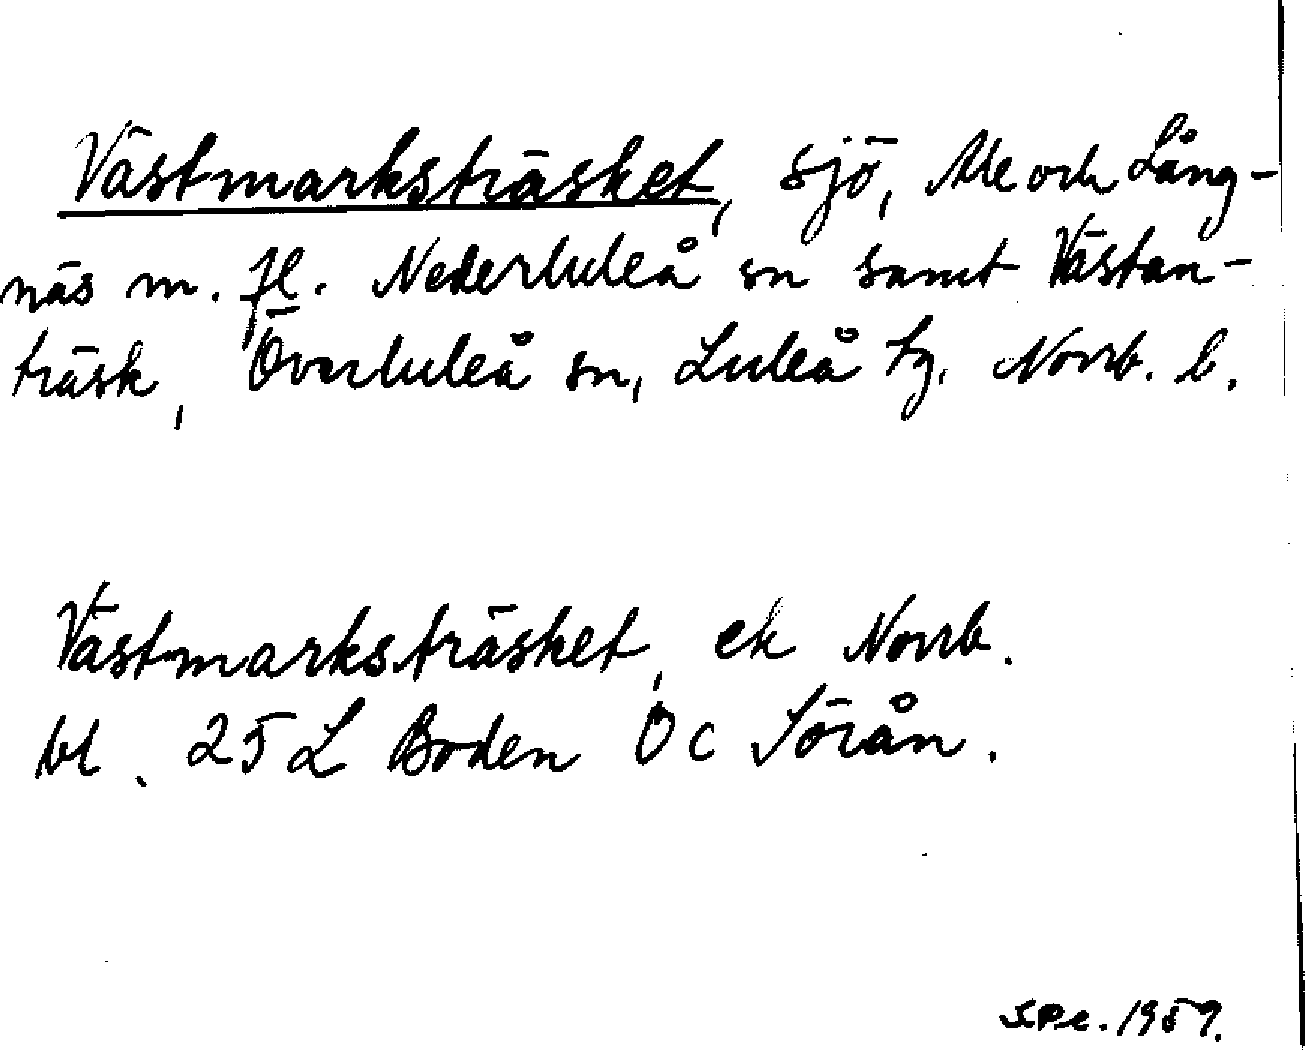 Västmarksträsket, sjö, Ale och Lång-
näs m. fl. Nederluleå sn samt Västan-
träsk, Överluleå sn, Luleå tg. Norrb. l.
Västmarksträsket, ek Norrb.
bl. 25 L Boden 0 c Sörån.
1959.